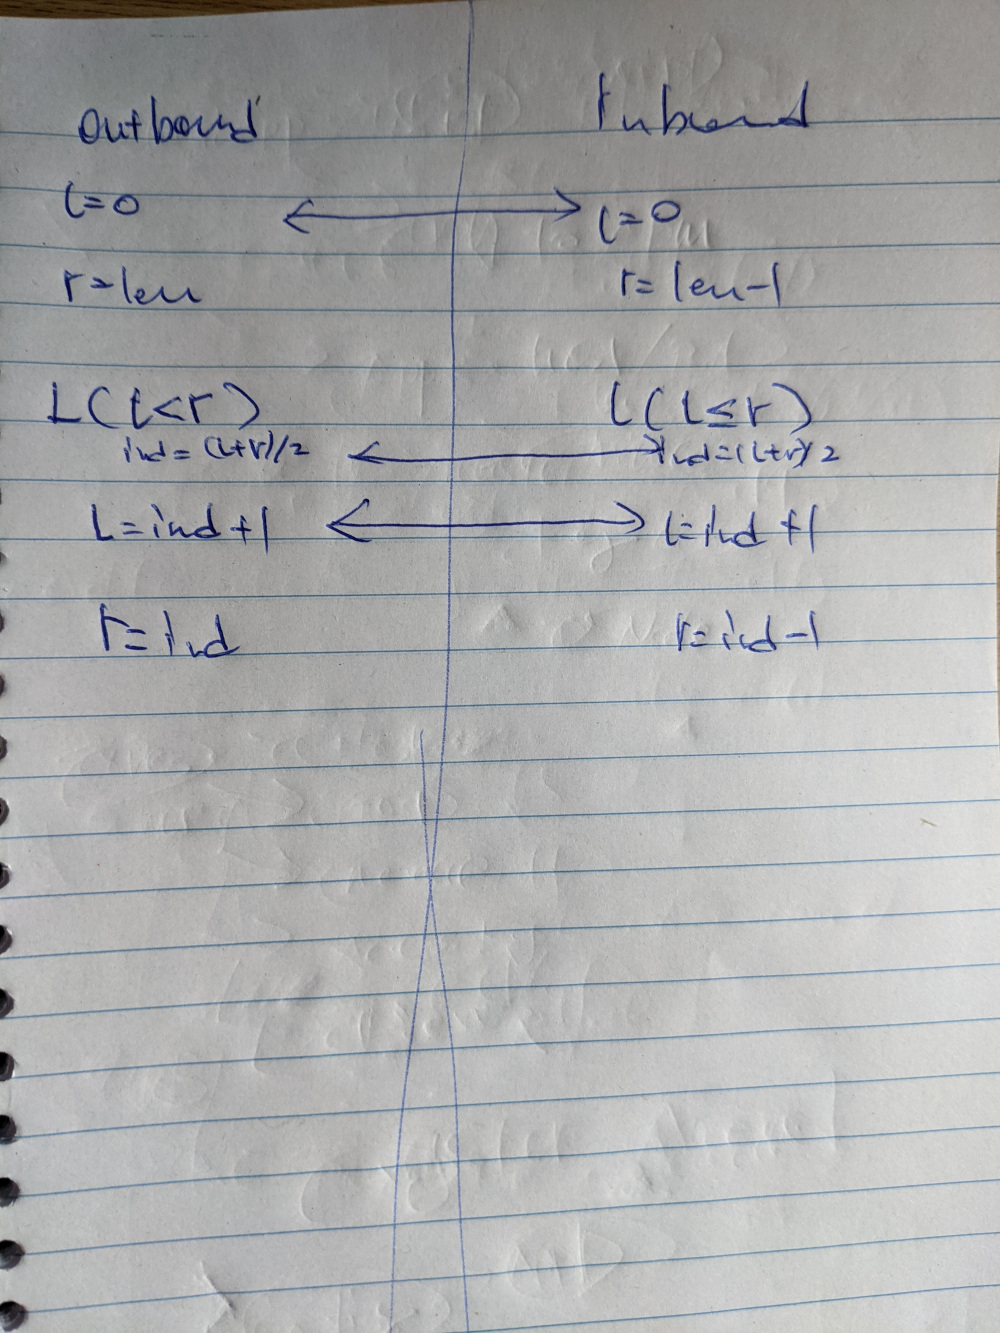 Outbound
l=0
r=len
L(l<r)
ind=(l+r)/2
L=ind+1
r=ind
Inbound
l=0
r=len-1
L(l≤r)
ind=(l+r)/2
l=ind+1
r=ind-1